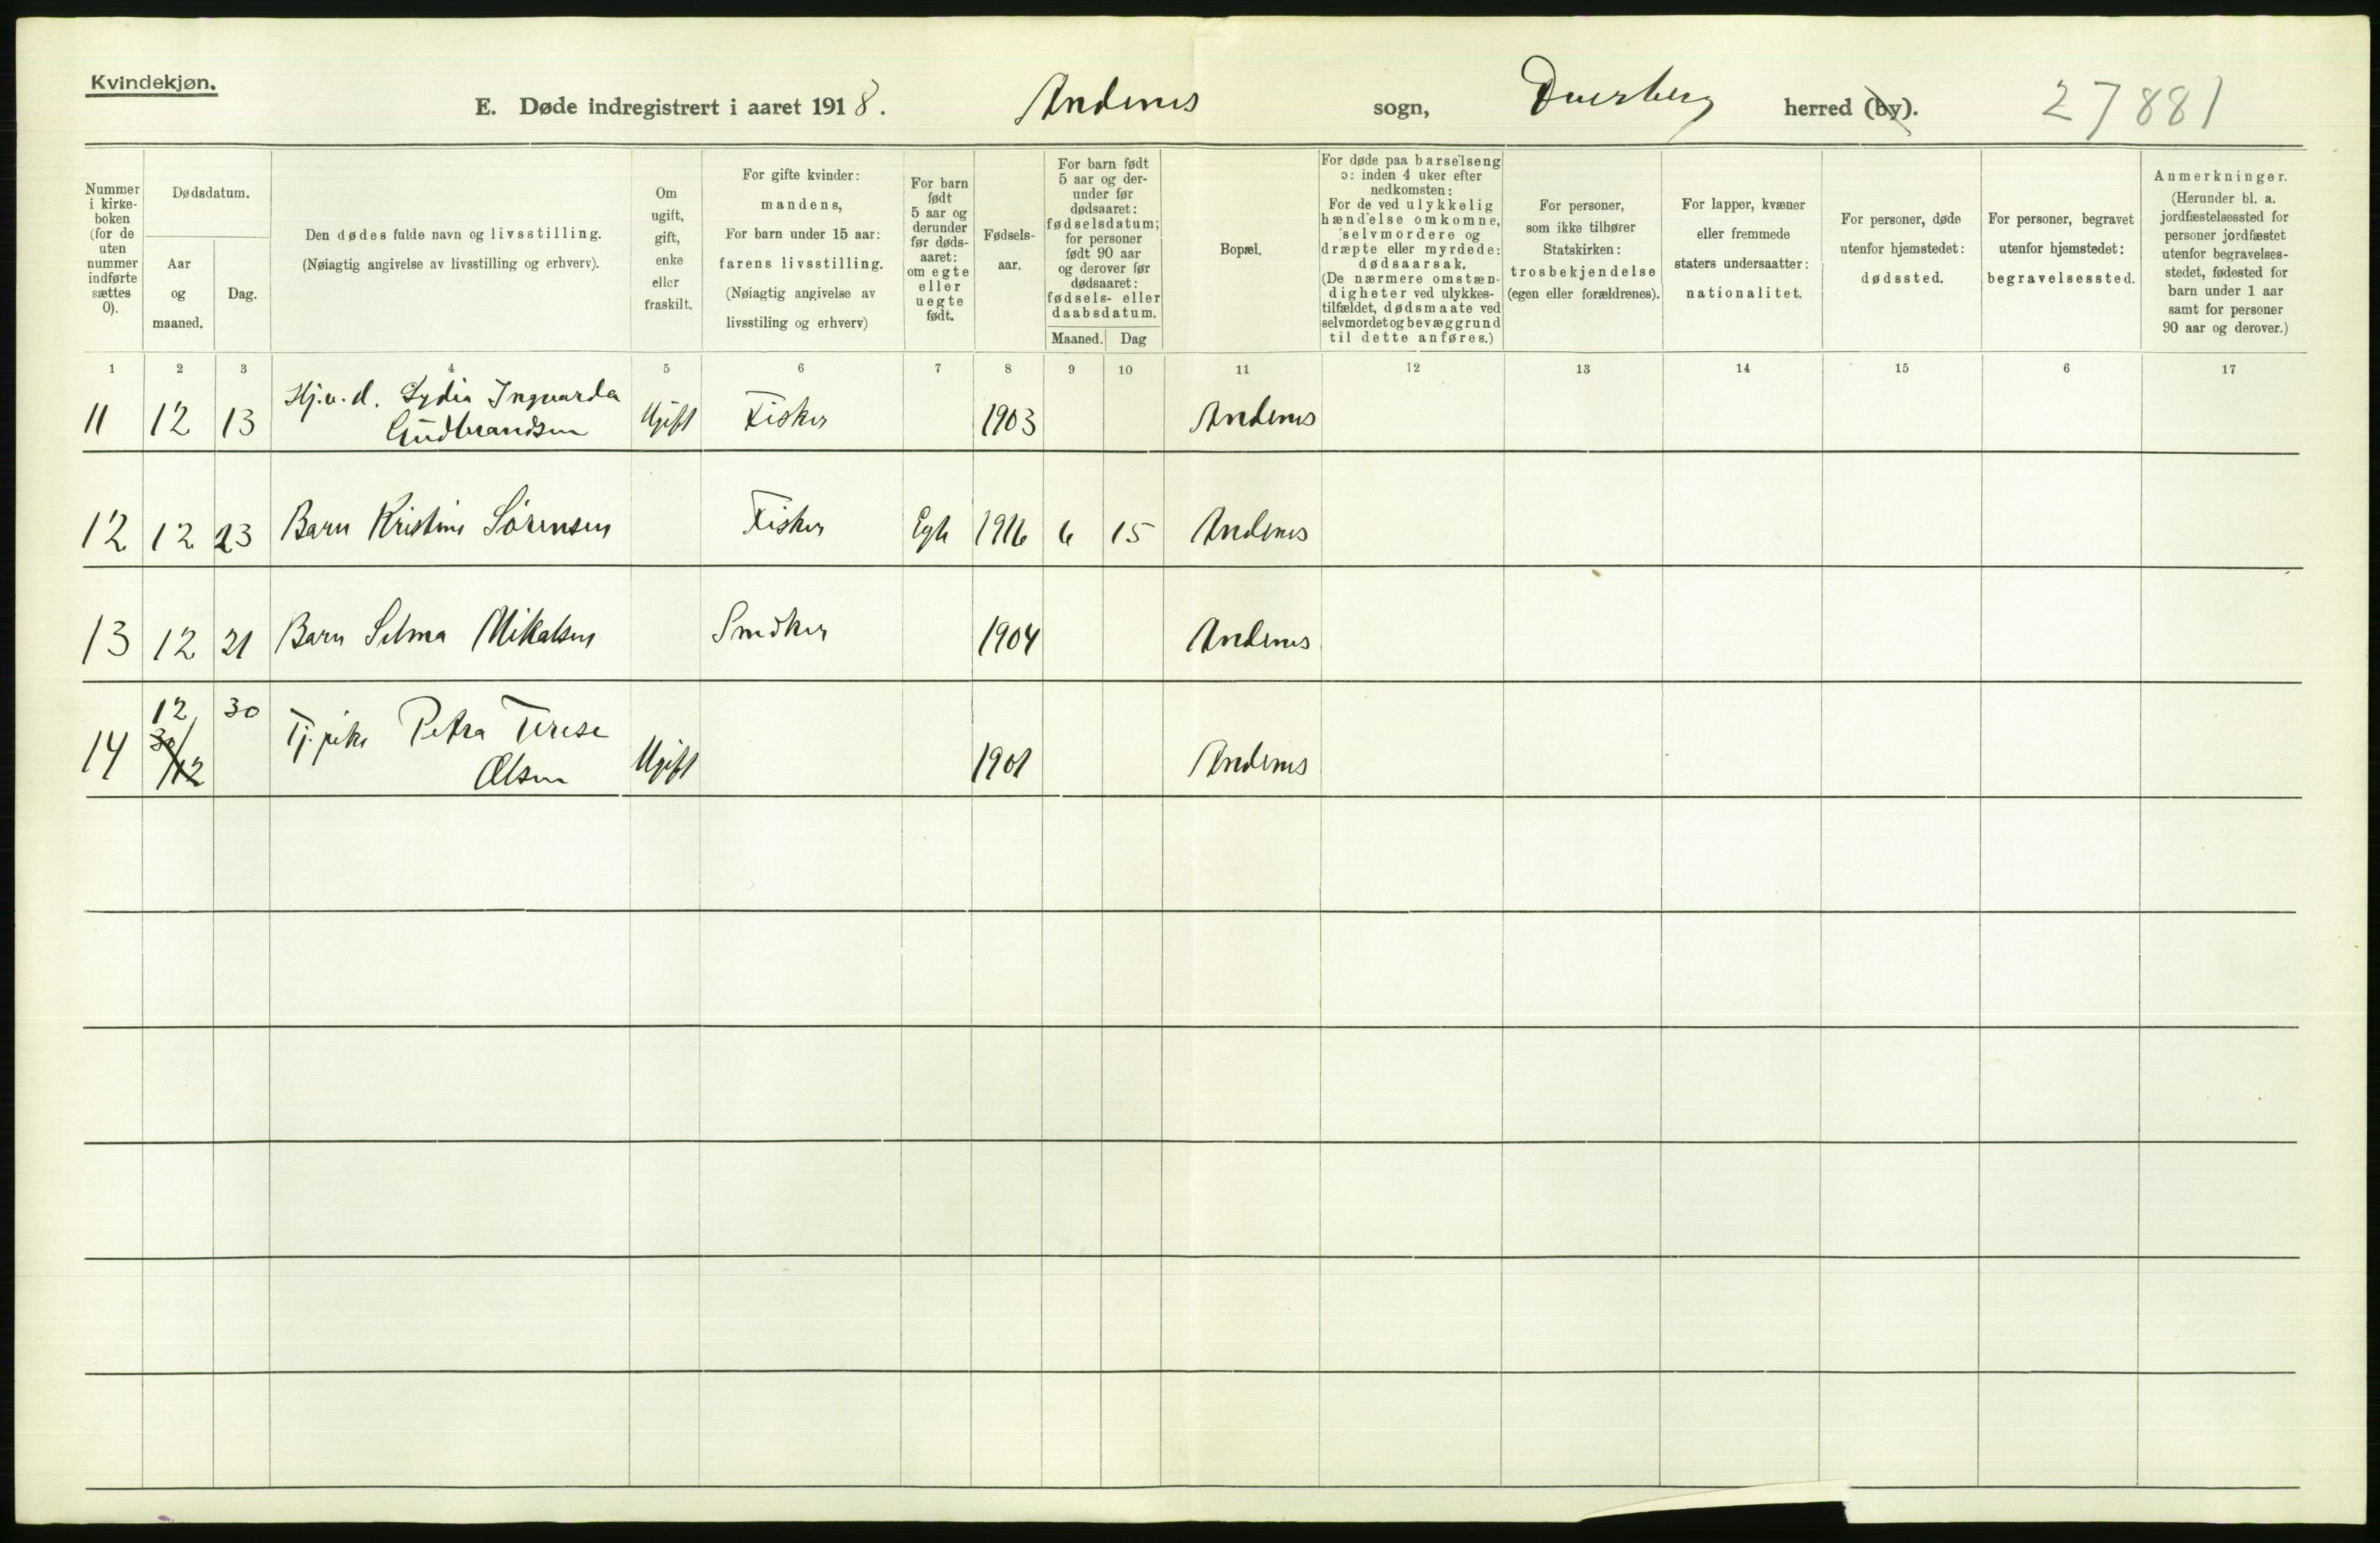 Kvindekjøn.
E. Døde indregistrert i aaret 1918. Andenes sogn, Dverberg herred (by). 27881
Nummer i kirke-boken (for de uten nummer indførte sættes 0).
Dødsdatum.
Aar og maaned.
Dag.
Den dødes fulde navn og livsstilling.
(Nøiagtig angivelse av livsstilling og erhverv).
Om ugift, gift, enke eller fraskilt.
For gifte kvinder:
mandens,
For barn under 15 aar:
farens livsstilling.
(Nøiagtig angivelse av
livsstiling og erhverv)
For barn født 5 aar og derunder før døds-aaret: om egte eller uegte født.
Fødsels-aar.
For barn født 5 aar og der-under før dødsaaret: fødselsdatum; for personer født 90 aar og derover før dødsaaret: fødsels- eller daabsdatum.
Maaned. Dag
Bopæl.
For døde paa barselseng
ɔ: inden 4 uker efter
nedkomsten:
For de ved ulykkelig
hændelse omkomne,
selvmordere og
dræpte eller myrdede:
dødsaarsak.
(De nærmere omstæn-
digheter ved ulykkes-
tilfældet, dødsmaate ved
selvmordet og bevæggrund
til dette anføres.)
For personer,
som ikke tilhører
Statskirken:
trosbekjendelse
(egen eller forældrenes).
For lapper, kvæner
eller fremmede
staters undersaatter:
nationalitet.
For personer, døde
utenfor hjemstedet:
dødssted.
For personer, begravet
utenfor hjemstedet:
begravelsessted.
Anmerkninger.
(Herunder bl. a.
jordfæstelsessted for
personer jordfæstet
utenfor begravelses-
stedet, fødested for
barn under 1 aar
samt for personer
90 aar og derover.)
1 2 3 4 5 6 7 8 9 10 11 12 13 14 15 6 17
11 12 13 Hj.v.d. Lydia Ingvarda Gudbrandsen Ugift Fisker 1903 Andenes
12 12 23 Barn Kristine Sörensen Fisker Egte 1916 6 15 Andenes
13 12 21 Barn Selma Mikalsen Snidker 1904 Andenes
14 12 30 Tj.pike Petra Terese Olsen Ugift 1901 Andenes
30/12